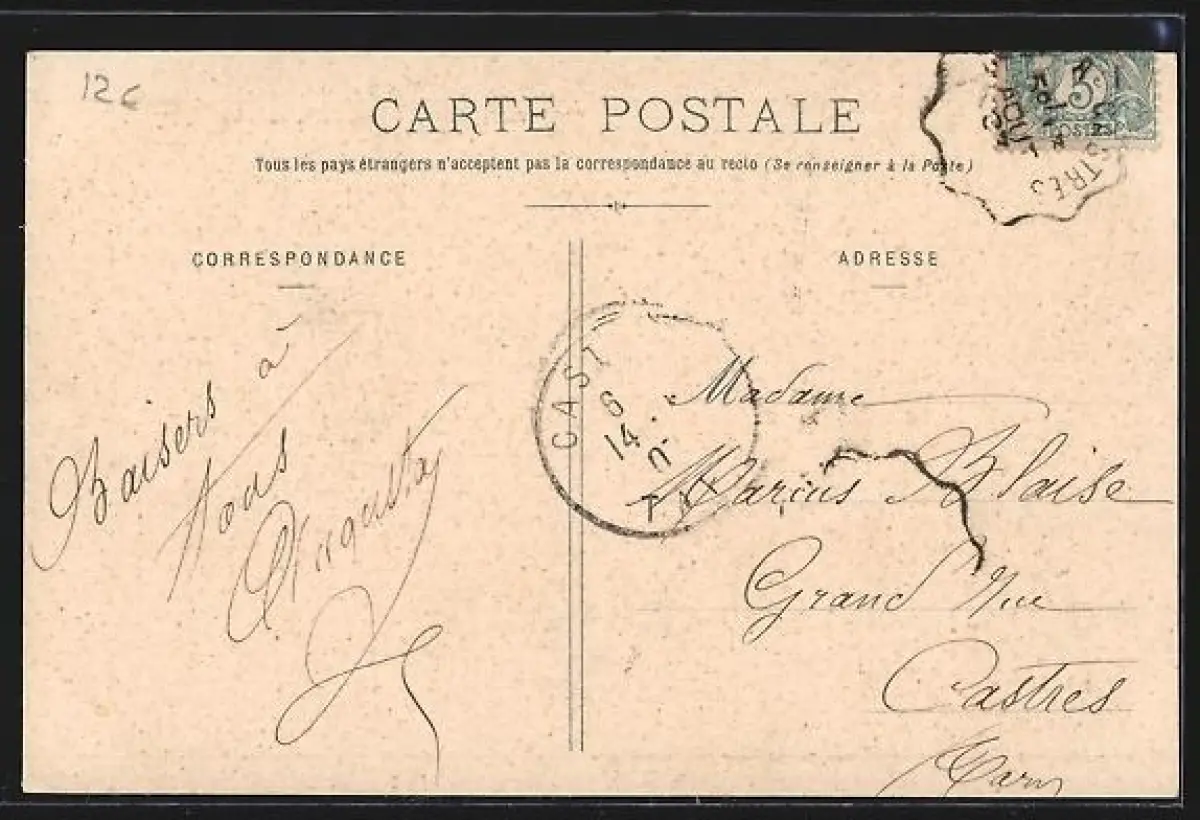 12€
CARTE POSTALE
Tous les pays étrangers n'acceptent pas la correspondance au recto (Se renseigner à la Poste)
CORRESPONDANCE
Baisers à
tous
Augusta
ADRESSE
Madame
Marius Blaise
Grand Rue
Castres
Tarn
CAST
6
14
TRES
AOUT
5c
POSTES